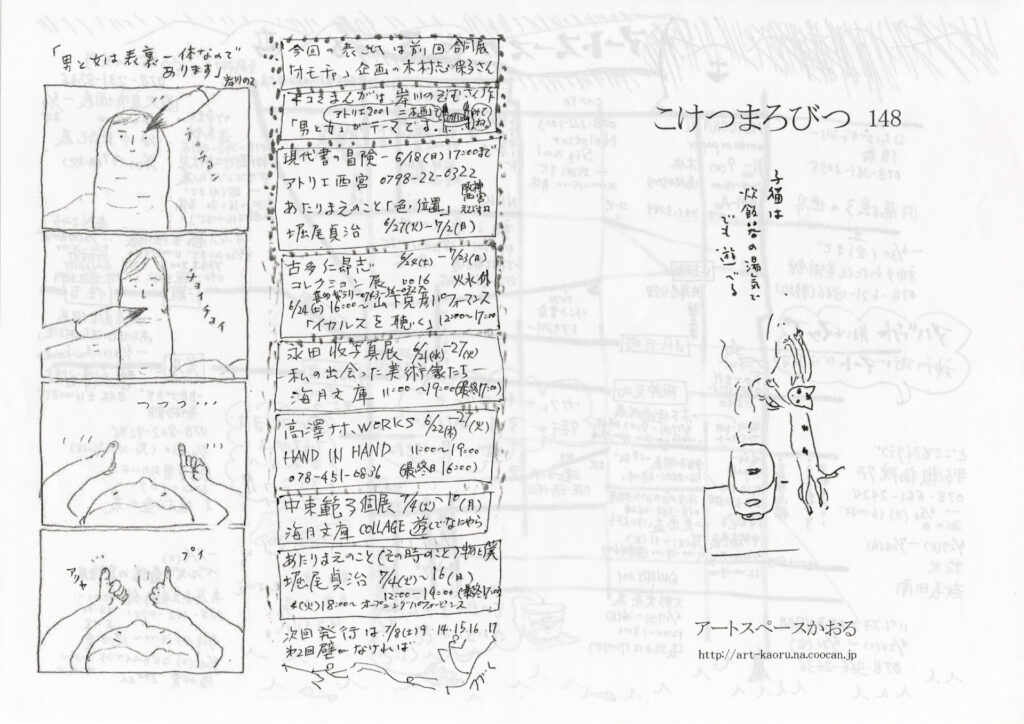 こけつまろびつ 148
子猫は
炊飯器の湯気で
でも遊べる
アートスペースかおる
http://art-kaoru.na.coocan.jp
「男と女は表裏一体なので
あります」
チョキチョン
チョイチョイ
つつつ・・・
プイ
今回の表紙は前回合同展
「オモチャ」企画の木村志保子さん
「男と女」がテーマです。
アトリエ2001
現代書の冒険−6/18(日)17:00まで
アトリエ西宮 0798-22-0322
阪神
西宮
えびす口
あたりまえのこと「色・位置」
堀尾貞治 6/27(火)−7/2(日)
古多仁昴志 6/24(土)−7/23(日)
コレクション展 火水休
6/24(土)16:00〜山下克彦パフォーマンス
「イカルスを聴く」12:00〜17:00
永田收写真展 6/21(水)−27(火)
私の出会った美術家たち−
海月文庫 11:00〜19:00(最終17:00)
高澤ナナ、WORKS 6/22(木)−27(火)
HAND IN HAND 11:00〜19:00
078-451-6836 (最終日16:00)
中東範子個展 7/4(火)〜10(月)
海月文庫 COLLAGE 遊んでなにやら
あたりまえのこと(その時のこと)
堀尾貞治 7/4(火)〜16(日)
12:00〜19:00(最終17:00)
4(火)18:00〜オープニングパフォーマンス
次回発行は7/8(土)9.14.15.16.17
第2回壁がなければ